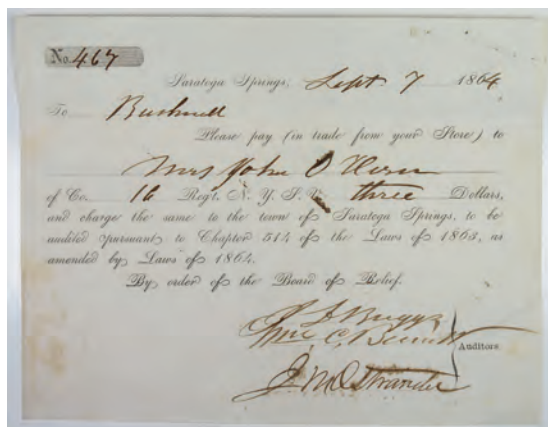 No. 467
Saratoga Springs, Sept 7 1864
To Bushnell
Please pay (in trade from your Store) to
Mrs John O
of Co. 16 Reg't. N. Y. S. V. three Dollars,
and charge the same to the town of Saratoga Springs, to be
audited pursuant to Chapter 514 of the Laws of 1863, as
amended by Laws of 1864.
By order of the Board of Relief.
Briggs
C. Bennett
Auditors.
J. M. Ostrander